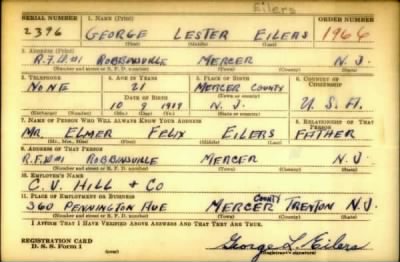 Eilers
SERIAL NUMBER 1. NAME (Print) ORDER NUMBER
2396 GEORGE LESTER EILERS 1966
(First) (Middle) (Last)
2. ADDRESS (Print)
R.F.D.#1 ROBBINSVILLE MERCER N.J.
(Number and street or R. F. D. number) (Town) (County) (State)
3. TELEPHONE 4. AGE IN YEARS 5. PLACE OF BIRTH 6. COUNTRY OF CITIZENSHIP
NONE 21 MERCER COUNTY
(Town or county)
DATE OF BIRTH
10 9 1919 N.J. U.S.A.
(Exchange) (Number) (Mo.) (Day) (Yr.) (State or country)
7. NAME OF PERSON WHO WILL ALWAYS KNOW YOUR ADDRESS 8. RELATIONSHIP OF THAT PERSON
MR. ELMER FELIX EILERS FATHER
(Mr., Mrs., Miss) (First) (Middle) (Last)
9. ADDRESS OF THAT PERSON
R.F.D.#1 ROBBINSVILLE MERCER N.J.
(Number and street or R. F. D. number) (Town) (County) (State)
10. EMPLOYER'S NAME
C. V. HILL + CO
11. PLACE OF EMPLOYMENT OR BUSINESS
COUNTY
360 PENNINGTON AVE MERCER TRENTON N.J.
(Number and street or R. F. D. number) (Town) (County) (State)
I AFFIRM THAT I HAVE VERIFIED ABOVE ANSWERS AND THAT THEY ARE TRUE.
REGISTRATION CARD
D. S. S. Form 1
George L. Eilers
(Registrant's signature)